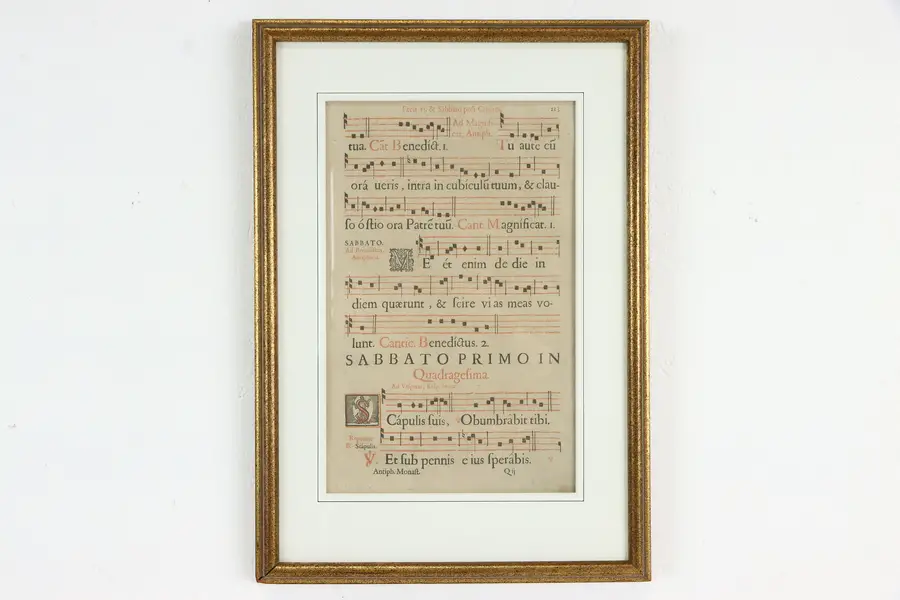 Feria vi. & Sabbato post Cineres.
Ad Magnif.
Antiph.
tua. Cãt Benedict. 1. Tu autẽ cũ
orá ueris, intra in cubiculũ tuum, & clau-
so óstio ora Patrẽ tuũ. Cant. Magnificat. 1.
SABBATO.
Ad Benedictus,
Antiphona.
ME ét enim de die in
diem quærunt, & scire vias meas vo-
lunt. Cantic. Benedictus. 2.
SABBATO PRIMO IN
Quadragesima.
Ad Vesperas,
SCápulis suis, Obumbrábit tibi.
Scápulis
℣. Et sub pennis eius sperábis.
Antiph. Monast. Q ij